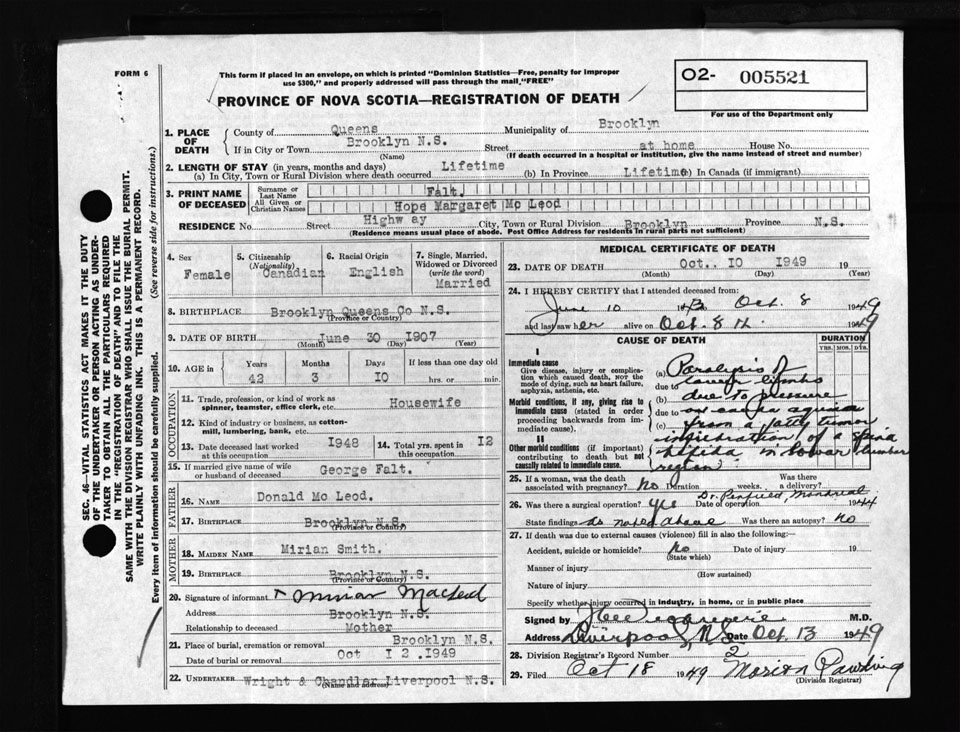 FORM 6
This form if placed in an envelope, on which is printed "Dominion Statistics—Free, penalty for improper
use $300," and properly addressed will pass through the mail "FREE"
O2- 005521
PROVINCE OF NOVA SCOTIA—REGISTRATION OF DEATH
For use of the Department only
SEC. 46—VITAL STATISTICS ACT MAKES IT THE DUTY
OF THE UNDERTAKER OR PERSON ACTING AS UNDER-
TAKER TO OBTAIN ALL THE PARTICULARS REQUIRED
IN THE "REGISTRATION OF DEATH" AND TO FILE THE
SAME WITH THE DIVISION REGISTRAR WHO SHALL ISSUE THE BURIAL PERMIT.
WRITE PLAINLY WITH UNFADING INK. THIS IS A PERMANENT RECORD.
Every item of information should be carefully supplied. (See reverse side for instructions.)
1. PLACE OF DEATH
County of Queens Municipality of Brooklyn
If in City or Town Brooklyn N.S. Street at home House No.
(Name) (If death occurred in a hospital or institution, give the name instead of street and number)
2. LENGTH OF STAY (in years, months and days)
(a) In City, Town or Rural Division where death occurred Lifetime (b) In Province Lifetime (c) In Canada (if immigrant)
3. PRINT NAME OF DECEASED
Surname or Last Name Falt.
All Given or Christian Names Hope Margaret Mc Leod
RESIDENCE No. Street Highway City, Town or Rural Division Brooklyn Province N.S.
(Residence means usual place of abode. Post Office Address for residents in rural parts not sufficient)
4. Sex Female
5. Citizenship (Nationality) Canadian
6. Racial Origin English
7. Single, Married, Widowed or Divorced (write the word) Married
8. BIRTHPLACE Brooklyn Queens Co N.S.
(Province or Country)
9. DATE OF BIRTH June 30 1907
(Month) (Day) (Year)
10. AGE in Years 42 Months 3 Days 10 If less than one day old hrs. or min.
OCCUPATION
11. Trade, profession, or kind of work as
spinner, teamster, office clerk, etc. Housewife
12. Kind of industry or business, as cotton-
mill, lumbering, bank, etc.
13. Date deceased last worked at this occupation 1948
14. Total yrs. spent in this occupation 12
15. If married give name of wife
or husband of deceased George Falt.
FATHER
16. NAME Donald Mc Leod.
17. BIRTHPLACE Brooklyn N.S.
(Province or Country)
MOTHER
18. MAIDEN NAME Mirian Smith.
19. BIRTHPLACE Brooklyn N.S.
(Province or Country)
20. Signature of informant MacLeod
Address Brooklyn N.S.
Relationship to deceased Mother
21. Place of burial, cremation or removal Brooklyn N.S.
Date of burial or removal Oct 12. 1949
22. UNDERTAKER Wright & Chandlar Liverpool N.S.
(Name and address)
MEDICAL CERTIFICATE OF DEATH
23. DATE OF DEATH Oct.. 10 1949 19
(Month) (Day) (Year)
24. I HEREBY CERTIFY that I attended deceased from:
June 10 Oct. 8 1949
and last saw her alive on Oct. 8 th. 1949
CAUSE OF DEATH
DURATION
YRS. MOS. DYS.
I
Immediate cause
Give disease, injury or complica-
tion which caused death, not the
mode of dying, such as heart failure,
asphyxia, asthenia, etc.
Morbid conditions, if any, giving rise to
immediate cause (stated in order
proceeding backwards from im-
mediate cause).
II
Other morbid conditions (if important)
contributing to death but not
causally related to immediate cause.
(a) Paralysis of
due to lower limbs
(b) due to pressure
due to on cauda equina
(c) from a fatty tumor
infiltration of a spina
bifida in lowar lumbar
region.
25. If a woman, was the death
associated with pregnancy? No Duration weeks. Was there a delivery?
26. Was there a surgical operation? yes Date of operation Dr. Penfield, Montreal 1944
State findings as noted above Was there an autopsy? No
27. If death was due to external causes (violence) fill in also the following:—
Accident, suicide or homicide? No Date of injury 19
(State which)
Manner of injury
(How sustained)
Nature of injury
Specify whether injury occurred in industry, in home, or in public place
Signed by M.D.
Address Liverpool, N.S. Date Oct. 13 1949
28. Division Registrar's Record Number 2
29. Filed Oct 18 1949 Marion
(Division Registrar)